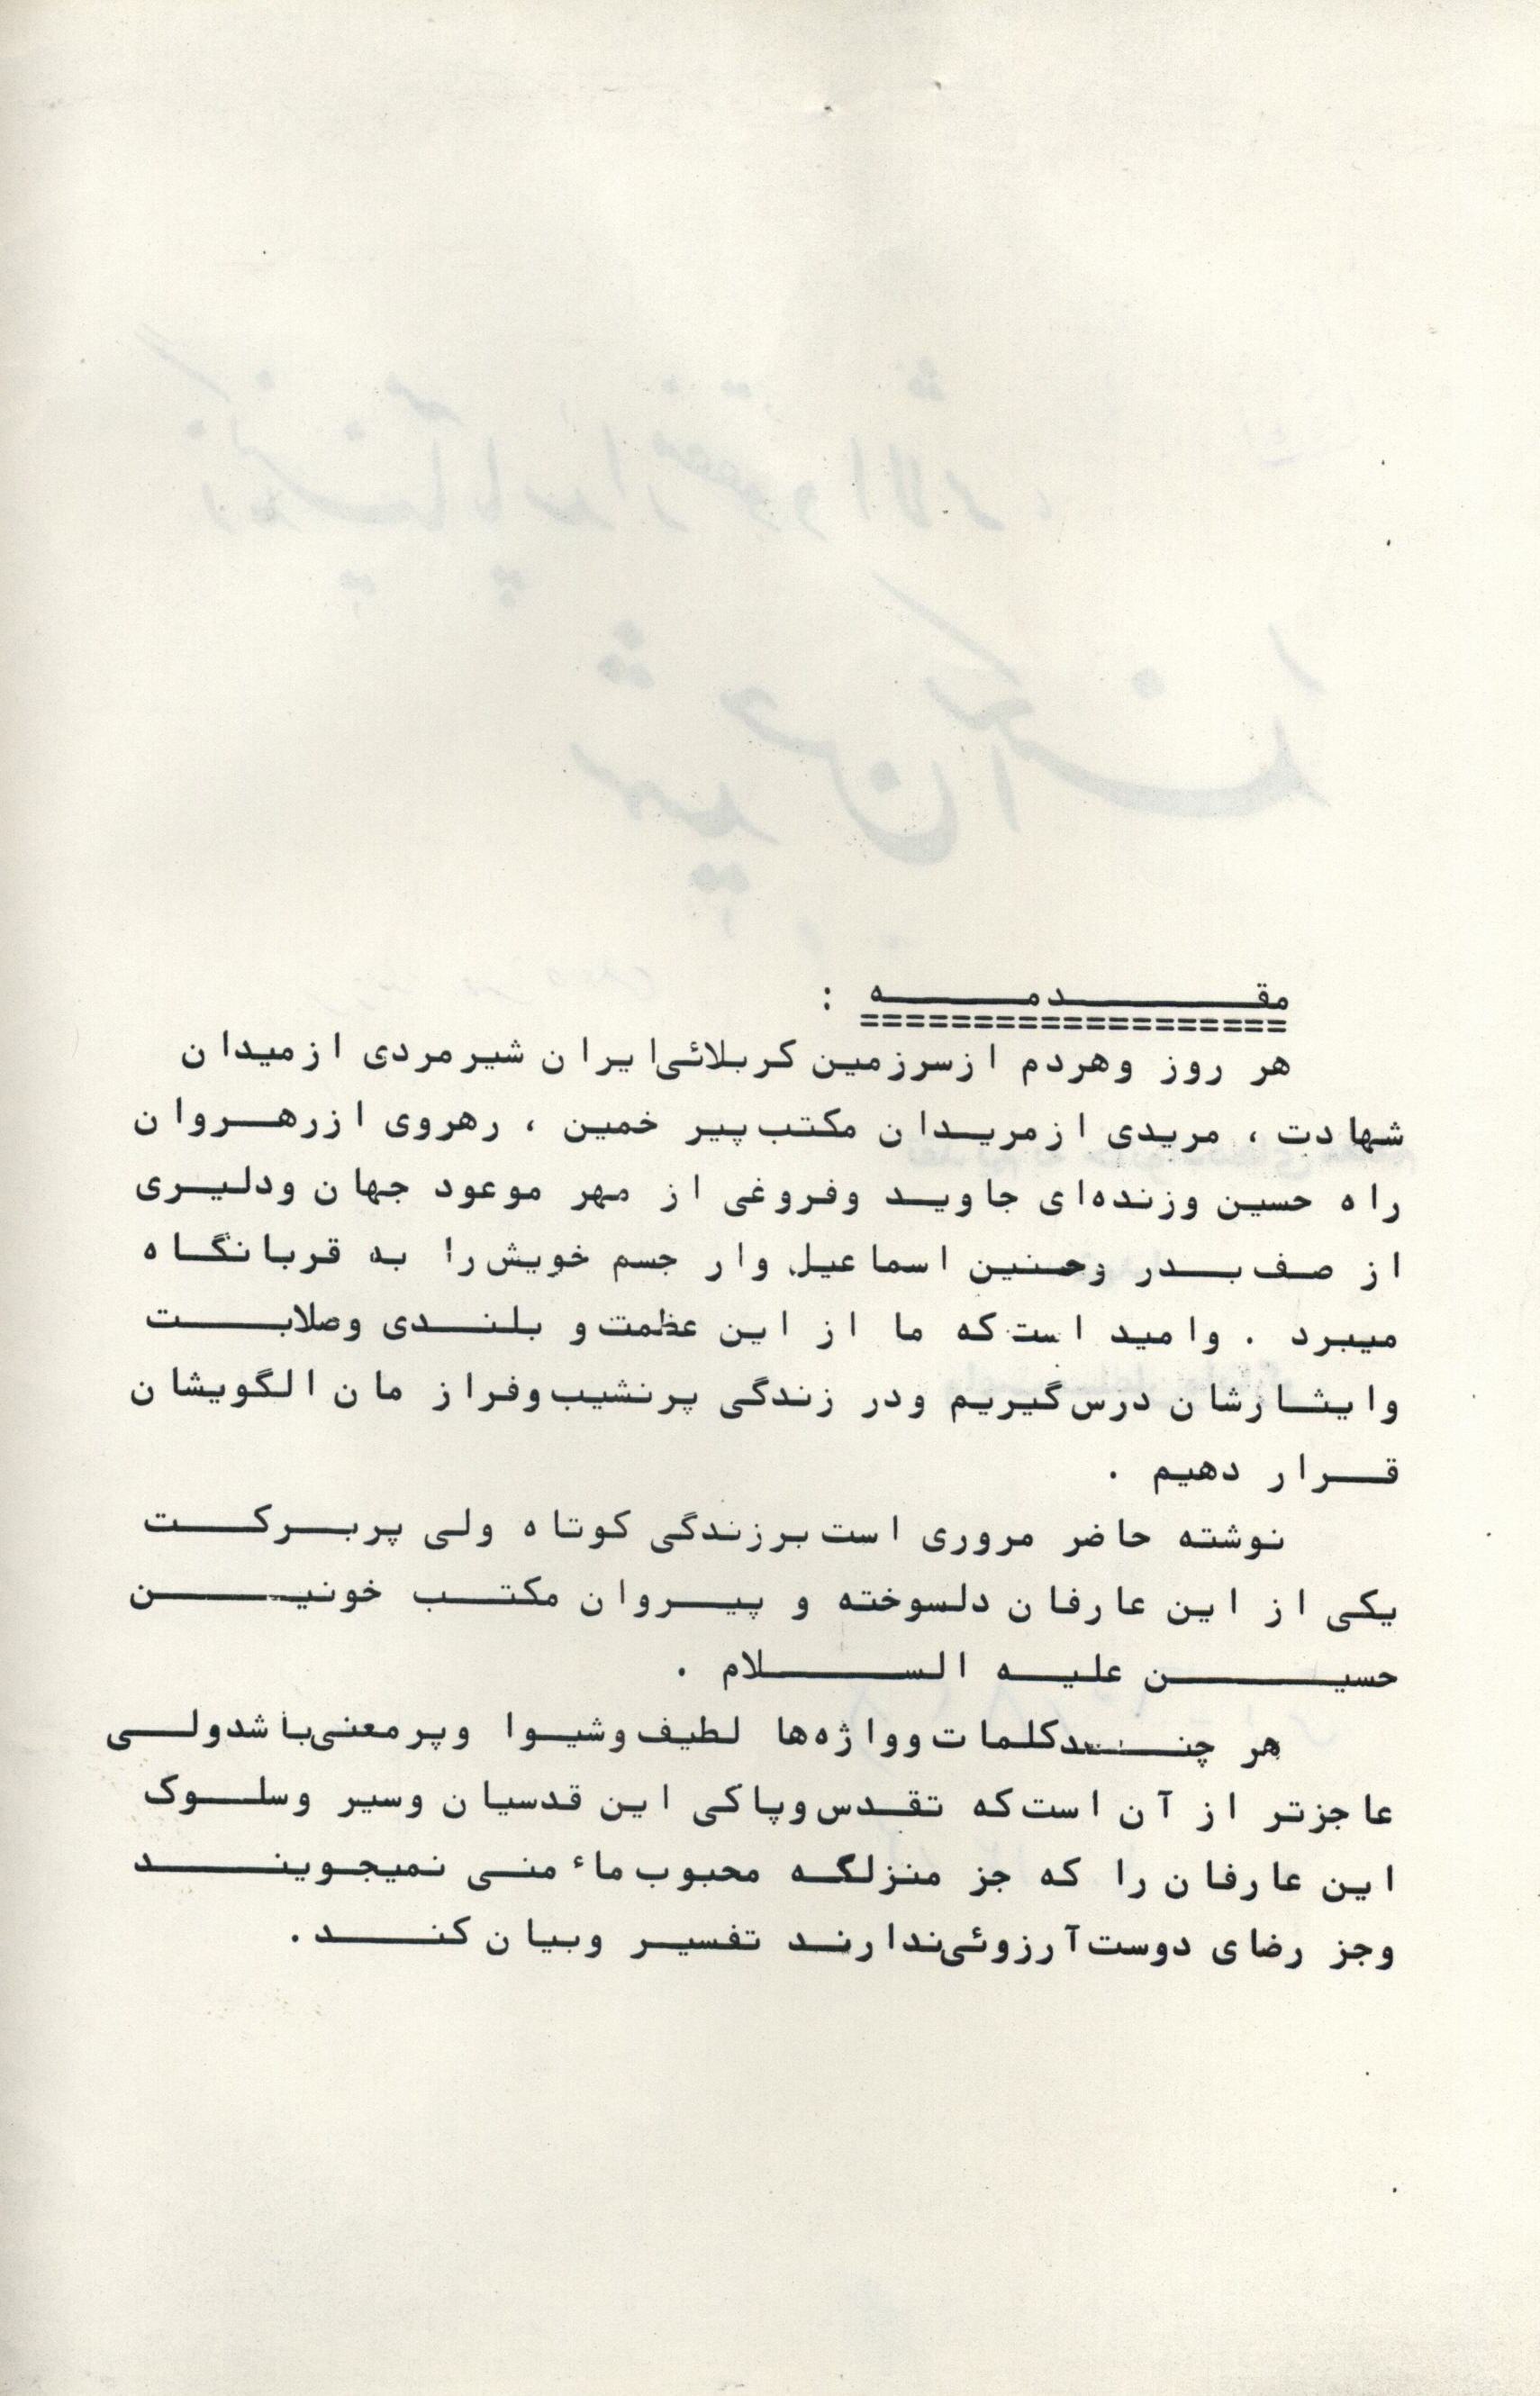 مقدمه :
==================
هر روز وهردم ازسرزمین کربلائی ایران شیرمردی ازمیدان
شهادت ، مریدی ازمریدان مکتب پیر خمین ، رهروی ازرهروان
راه حسین وزنده‌ای جاوید وفروغی از مهر موعود جهان ودلیری
از صف بدر وحنین اسماعیل وار جسم خویش را به قربانگاه
میبرد . وامید است که ما از این عظمت و بلندی وصلابت
وایثارشان درس گیریم ودر زندگی پرنشیب وفراز مان الگویشان
قرار دهیم .
نوشته حاضر مروری است برزندگی کوتاه ولی پربرکت
یکی از این عارفان دلسوخته و پیروان مکتب خونین
حسین علیه السلام .
هر چند کلمات وواژه‌ها لطیف وشیوا وپرمعنی باشدولی
عاجزتر از آن است که تقدس وپاکی این قدسیان وسیر وسلوک
این عارفان را که جز منزلگه محبوب ماء منی نمیجویند
وجز رضای دوست آرزوئی ندارند تفسیر وبیان کند .